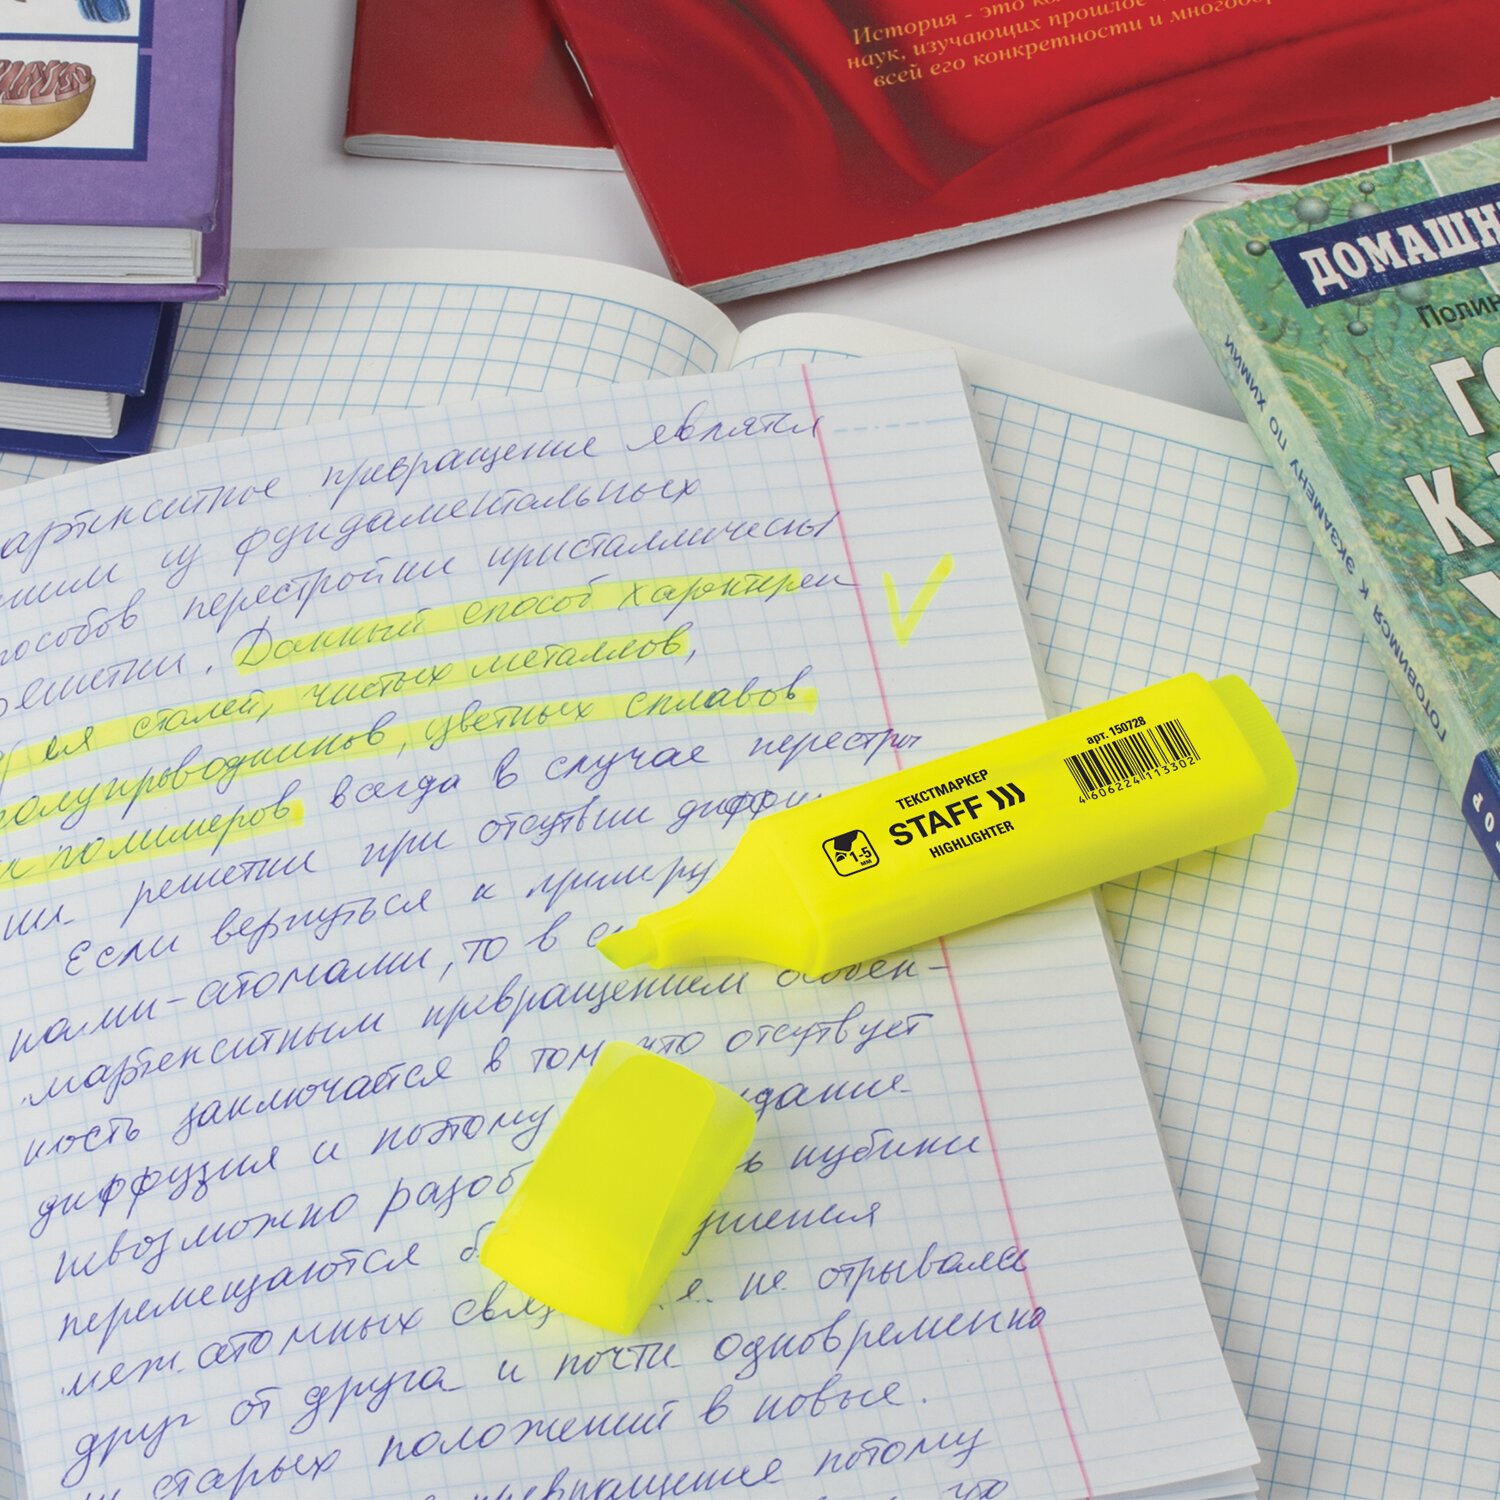 История - это
наук, изучающих прошлое
всей его конкретности и
ДОМАШН
Полин
ГОТОВИМСЯ К ЭКЗАМЕНУ ПО ХИМИИ
артенситное превращение являтся
ним из фундаментальных
пособов перестройки кристаллическы
решетки. Данный способ характерен
для сталей, чистых металлов,
полупроводников, цветных сплавов
и полимеров всегда в случае перестрой
ки решетки при отсутвии диффу
Если вернуться к примеру
ками-атомами, то в с
мартенситным превращением особен-
ность заключается в том что отсутвует
диффузия и поэтому
невозможно разоб ь кубики
перемещаются б ушения
межатомных связ .е. не отрываяс
друг от друга и почти одновременно
старых положений в новые.
превращение потому
что
арт. 150728
4606224113302
ТЕКСТМАРКЕР
STAFF
HIGHLIGHTER
1-5
мм